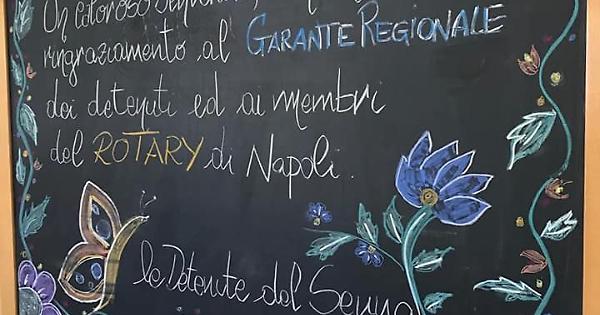 ringraziamento, al GARANTE REGIONALE
dei detenuti ed ai membri
del ROTARY di Napoli.
le Detenute del Senna